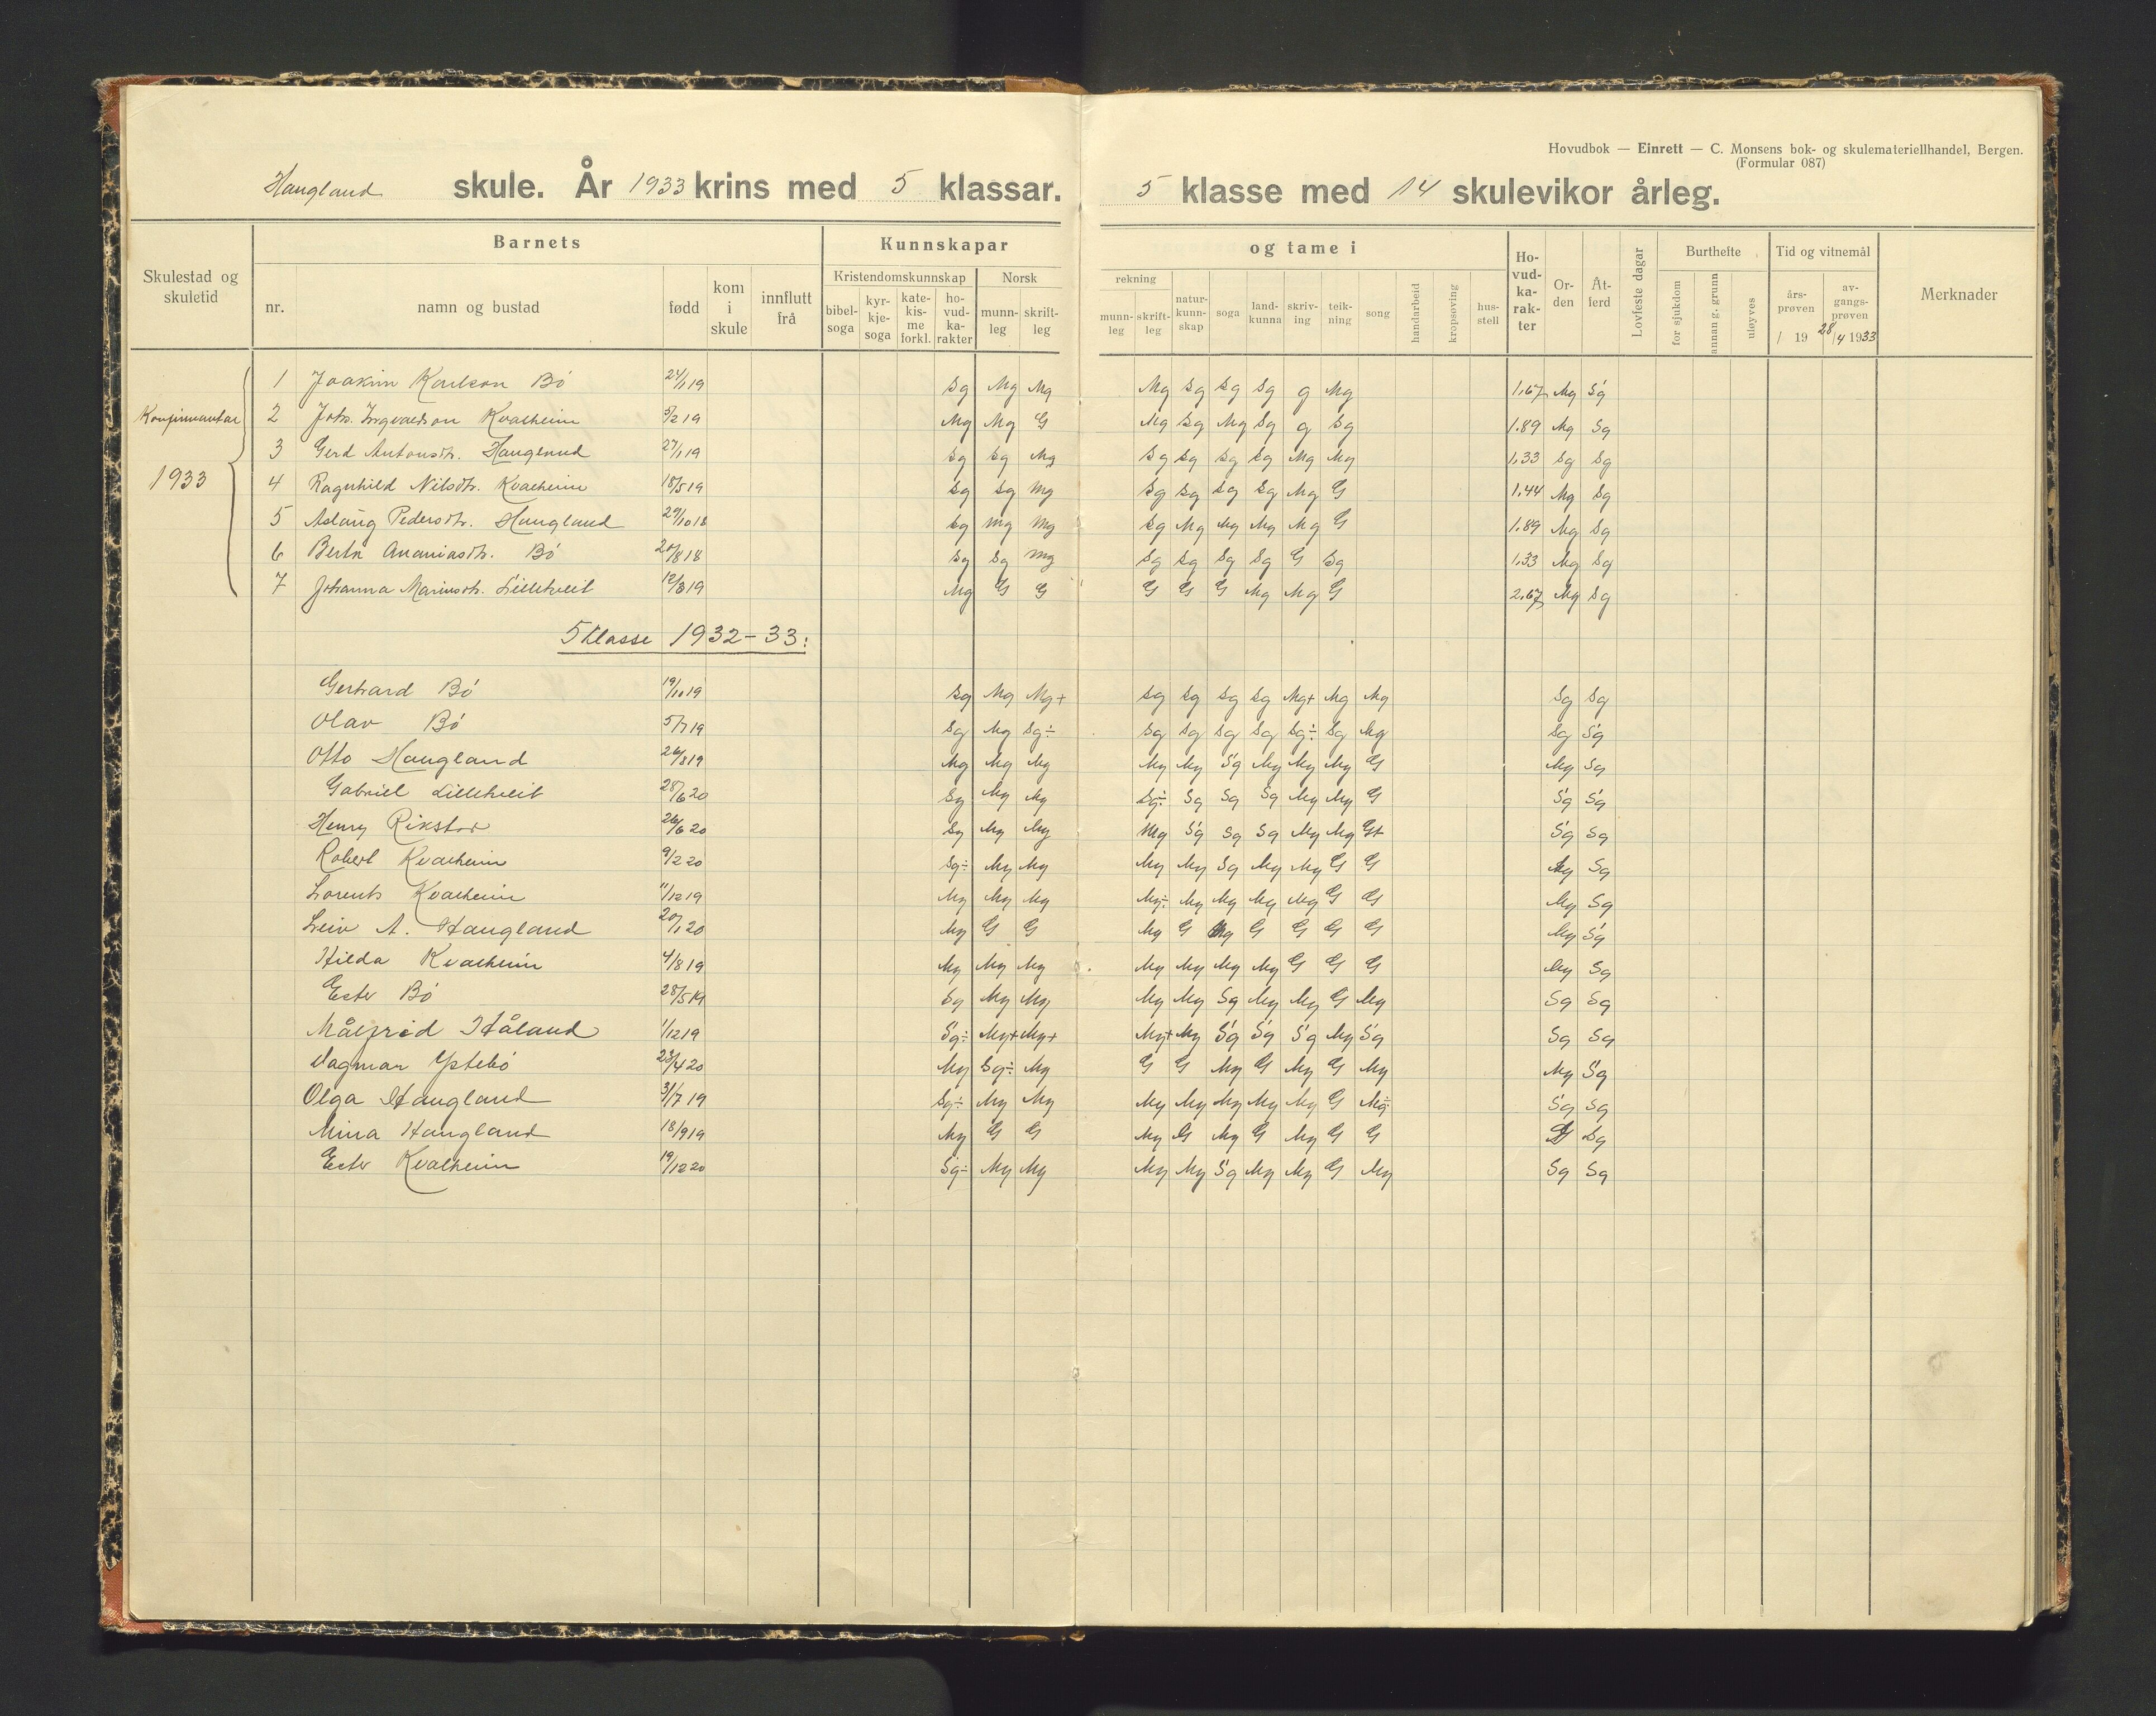 Hovudbok — Einrett — C. Monsens bok- og skulemateriellhandel, Bergen.
(Formular 087)
Haugland skule. År 1933 krins med 5 klassar. 5 klasse med 14 skulevikor årleg.
Skulestad og skuletid
Barnets
nr.
namn og bustad
fødd
kom i skule
innflutt frå
Kunnskapar og tame i
Kristendomskunnskap
bibel-soga
kyr-kje-soga
kate-kis-me forkl.
ho-vud-ka-rakter
Norsk
munn-leg
skrift-leg
rekning
munn-leg
skrift-leg
natur-kunn-skap
soga
land-kunna
skriv-ing
teik-ning
song
handarbeid
kropsøving
hus-stell
Ho-vud-ka-rak-ter
Or-den
Åt-ferd
Lovfeste dagar
Burthefte
for sjukdom
annan g. grunn
uløyves
Tid og vitnemål
års-prøven
/ 19
av-gangs-prøven
28/4 1933
Merknader
Konfirmantar
1933
1 Joakim Karlson Bö 24/1 19 Sg Mg Mg Mg Sg Sg Sg g Mg 1.67 Mg Sg
2 Joh. Ingvaldson Kvalheim 5/2 19 Mg Mg G Mg Sg Mg Sg g Sg 1.89 Mg Sg
3 Gerd Antonsdtr. Haugland 27/1 19 Sg Sg Mg Sg Sg Sg Sg Mg Mg 1.33 Sg Sg
4 Ragnhild Nilsdtr. Kvalheim 18/5 19 Sg Sg Mg Sg Sg Sg Sg Mg G 1.44 Mg Sg
5 Aslaug Pedersdtr. Haugland 29/10 18 Sg Mg Mg Sg Mg Mg Mg Mg G 1.89 Mg Sg
6 Berta Ananiasdtr. Bö 20/8 18 Sg Sg Mg Sg Sg Sg Sg G Sg 1.33 Mg Sg
7 Johanna Mariusdtr. Lilletveit 12/3 19 Mg G G G G G Mg Mg G 2.67 Mg Sg
5 Klasse 1932-33:
Gerhard Bö 19/10 19 Sg Mg Mg+ Sg Sg Sg Sg Mg+ Mg Mg Sg Sg
Olav Bö 5/7 19 Sg Mg Sg÷ Sg Sg Sg Sg Sg÷ Sg Mg Sg Sg
Otto Haugland 26/8 19 Mg Mg Mg Mg Mg Sg Mg Mg Mg G Mg Sg
Gabriel Lilletveit 28/6 20 Sg Mg Mg Sg÷ Sg Sg Sg Mg Mg G Sg Sg
Henry Rikstad 26/6 20 Sg Mg Mg Mg Sg Sg Sg Mg Mg G+ Sg Sg
Robert Kvalheim 9/2 20 Sg÷ Mg Mg Mg Mg Sg Mg Mg G G Mg Sg
Lorents Kvalheim 11/12 19 Mg Mg Mg Mg÷ Mg Mg Mg Mg G G Mg Sg
Leiv A. Haugland 20/1 20 Mg G G Mg G Mg G G G G Mg Sg
Hilda Kvalheim 4/8 19 Mg Mg Mg Mg Mg Mg Mg G G G Mg Sg
Ester Bö 28/5 19 Sg Mg Mg Mg Mg Sg Mg Mg G Mg Sg Sg
Målfrid Håland 1/12 19 Sg÷ Mg+ Mg+ Mg+ Mg Sg Sg Sg Mg Sg Sg Sg
Dagmar Ystebö 23/4 20 Mg Sg÷ Mg G G Mg G Mg G Mg Mg Sg
Olga Haugland 31/7 19 Sg÷ Mg Mg Mg Mg Mg Mg Mg G Mg÷ Sg Sg
Mina Haugland 18/9 19 Mg G G Mg G Mg G Mg G G Sg
Ester Kvalheim 19/12 20 Sg÷ Mg Mg Mg Mg Sg Mg Mg G Mg Sg Sg